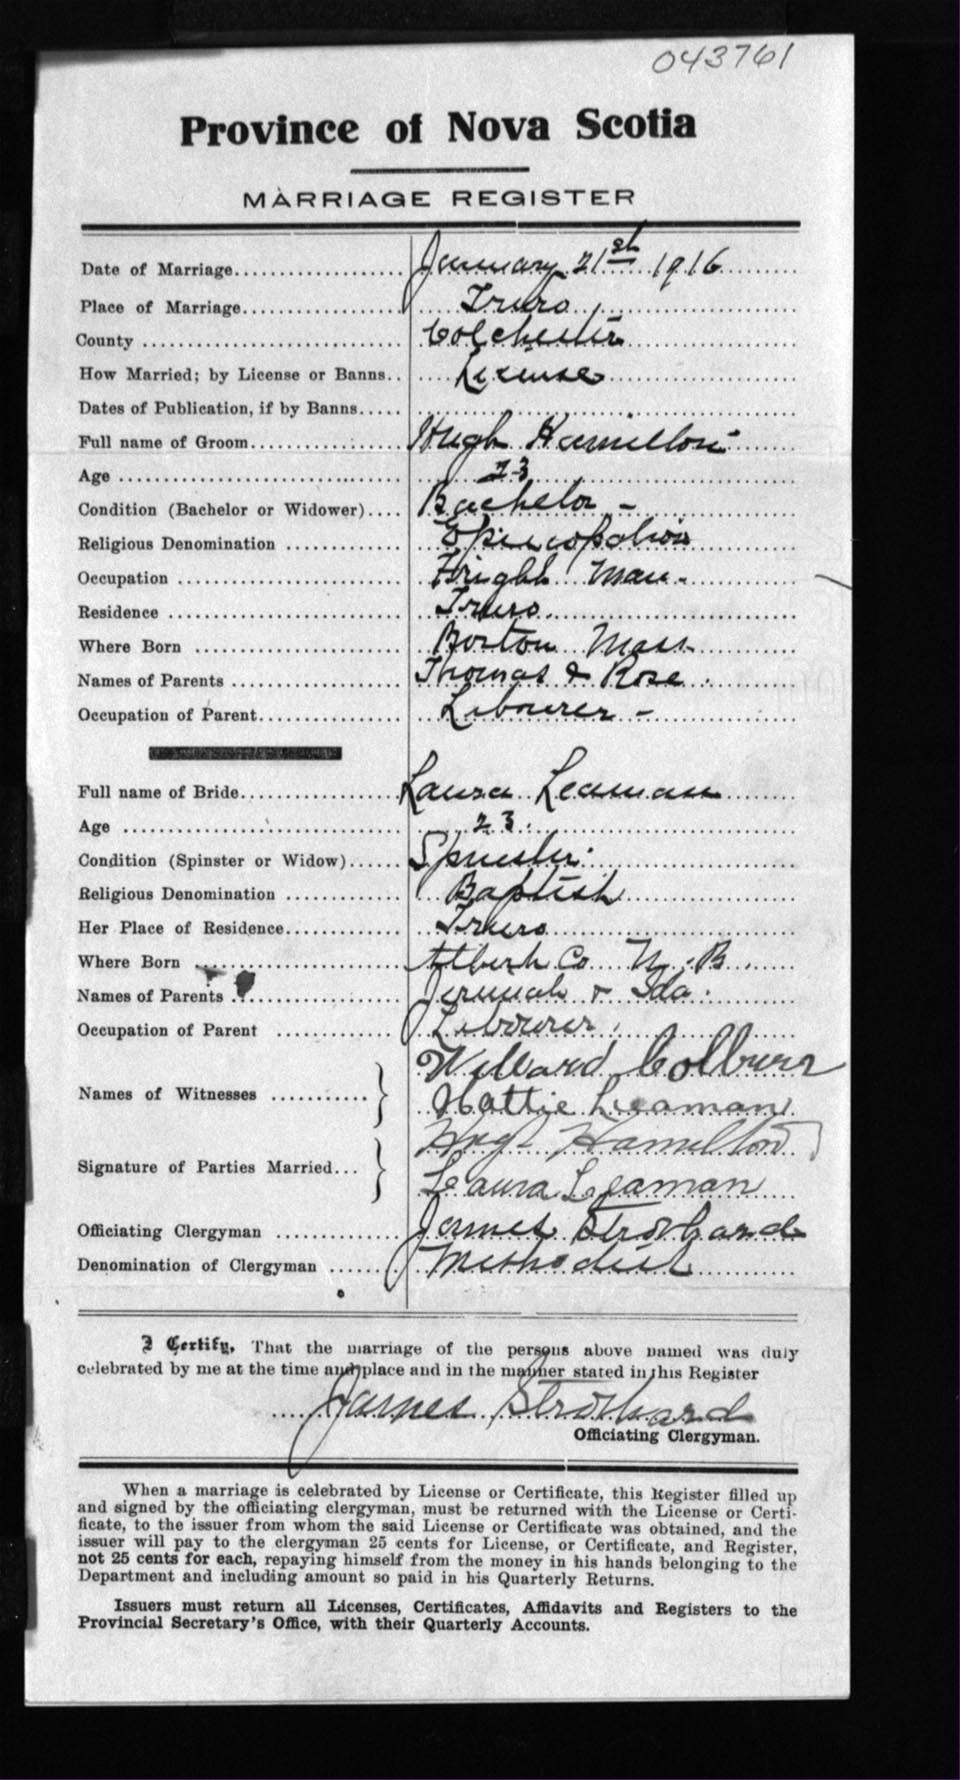 043761
Province of Nova Scotia
MARRIAGE REGISTER
Date of Marriage January 21st 1916
Place of Marriage Truro
County Colchester
How Married; by License or Banns License
Dates of Publication, if by Banns
Full name of Groom Hugh Hamilton
Age 23
Condition (Bachelor or Widower) Bachelor -
Religious Denomination Episcopalian
Occupation Man.
Residence Truro.
Where Born Boston Mass
Names of Parents Thomas & Rose.
Occupation of Parent Labourer -
Full name of Bride Laura Leaman
Age 23.
Condition (Spinster or Widow) Spinster.
Religious Denomination Baptist
Her Place of Residence Truro
Where Born Albert Co N.B.
Names of Parents Jeremiah & Ida.
Occupation of Parent Labourer.
Names of Witnesses } Willard Colburn
Hattie Leaman
Signature of Parties Married } Hugh Hamilton
Laura Leaman
Officiating Clergyman James Strothard
Denomination of Clergyman Methodist
I Certify, That the marriage of the persons above named was duly
celebrated by me at the time and place and in the manner stated in this Register
James Strothard
Officiating Clergyman.
When a marriage is celebrated by License or Certificate, this Register filled up
and signed by the officiating clergyman, must be returned with the License or Certi-
ficate, to the issuer from whom the said License or Certificate was obtained, and the
issuer will pay to the clergyman 25 cents for License, or Certificate, and Register,
not 25 cents for each, repaying himself from the money in his hands belonging to the
Department and including amount so paid in his Quarterly Returns.
Issuers must return all Licenses, Certificates, Affidavits and Registers to the
Provincial Secretary's Office, with their Quarterly Accounts.